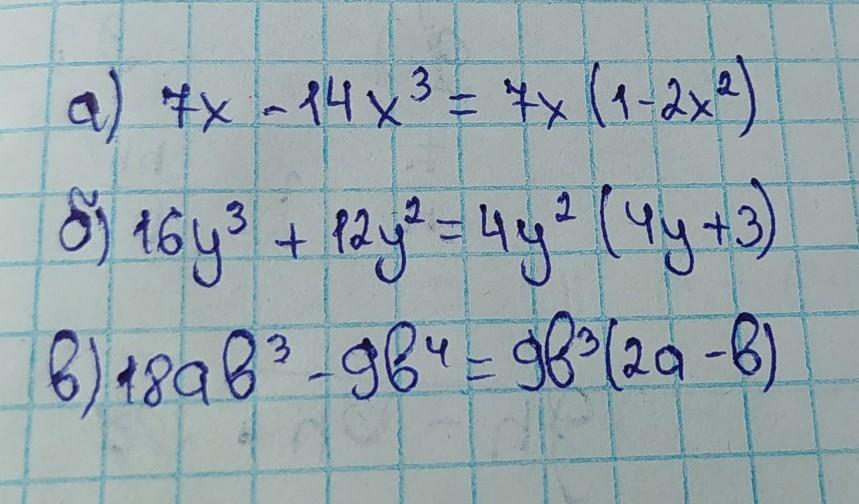 а) 7x - 14x³ = 7x (1 - 2x²)
б) 16y³ + 12y² = 4y² (4y + 3)
в) 18ab³ - 9b⁴ = 9b³ (2a - b)